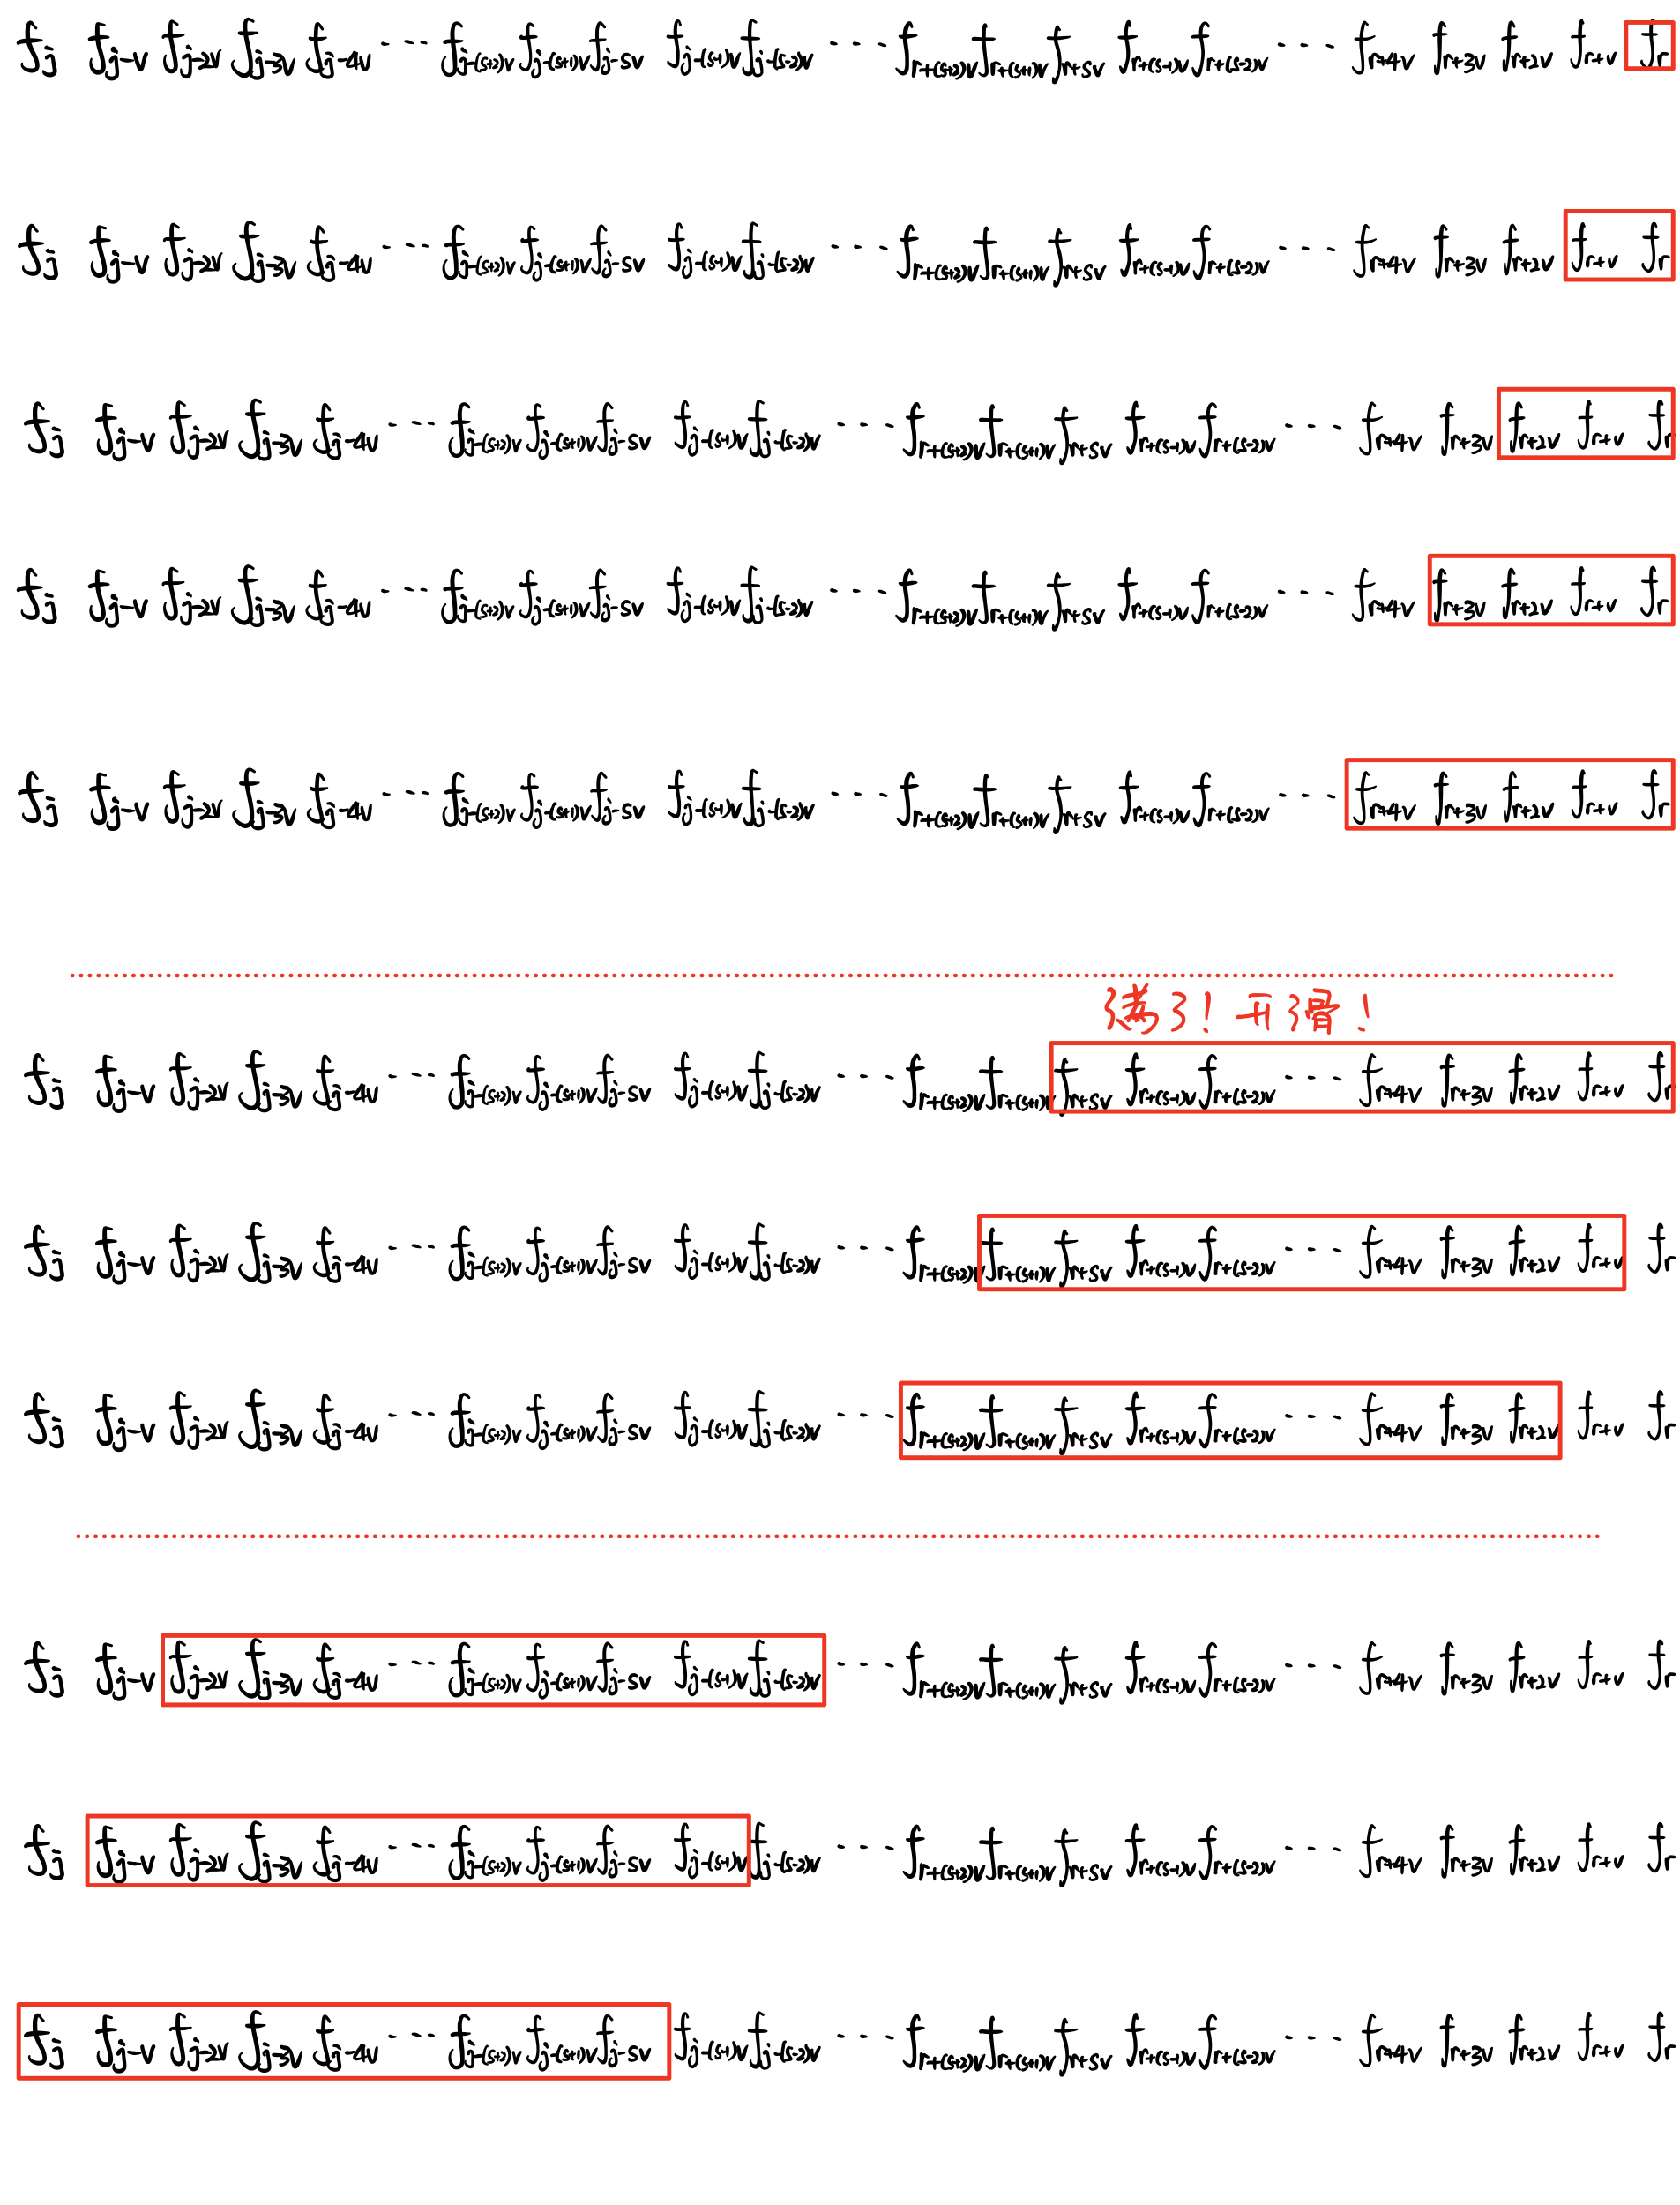 f_j f_{j-v} f_{j-2v} f_{j-3v} f_{j-4v} ... f_{j-(s+2)v} f_{j-(s+1)v} f_{j-sv} f_{j-(s-1)v} f_{j-(s-2)v} ... f_{r+(s+2)v} f_{r+(s+1)v} f_{r+sv} f_{r+(s-1)v} f_{r+(s-2)v} ... f_{r+4v} f_{r+3v} f_{r+2v} f_{r+v} f_r
f_j f_{j-v} f_{j-2v} f_{j-3v} f_{j-4v} ... f_{j-(s+2)v} f_{j-(s+1)v} f_{j-sv} f_{j-(s-1)v} f_{j-(s-2)v} ... f_{r+(s+2)v} f_{r+(s+1)v} f_{r+sv} f_{r+(s-1)v} f_{r+(s-2)v} ... f_{r+4v} f_{r+3v} f_{r+2v} f_{r+v} f_r
f_j f_{j-v} f_{j-2v} f_{j-3v} f_{j-4v} ... f_{j-(s+2)v} f_{j-(s+1)v} f_{j-sv} f_{j-(s-1)v} f_{j-(s-2)v} ... f_{r+(s+2)v} f_{r+(s+1)v} f_{r+sv} f_{r+(s-1)v} f_{r+(s-2)v} ... f_{r+4v} f_{r+3v} f_{r+2v} f_{r+v} f_r
f_j f_{j-v} f_{j-2v} f_{j-3v} f_{j-4v} ... f_{j-(s+2)v} f_{j-(s+1)v} f_{j-sv} f_{j-(s-1)v} f_{j-(s-2)v} ... f_{r+(s+2)v} f_{r+(s+1)v} f_{r+sv} f_{r+(s-1)v} f_{r+(s-2)v} ... f_{r+4v} f_{r+3v} f_{r+2v} f_{r+v} f_r
f_j f_{j-v} f_{j-2v} f_{j-3v} f_{j-4v} ... f_{j-(s+2)v} f_{j-(s+1)v} f_{j-sv} f_{j-(s-1)v} f_{j-(s-2)v} ... f_{r+(s+2)v} f_{r+(s+1)v} f_{r+sv} f_{r+(s-1)v} f_{r+(s-2)v} ... f_{r+4v} f_{r+3v} f_{r+2v} f_{r+v} f_r
满了！开滑！
f_j f_{j-v} f_{j-2v} f_{j-3v} f_{j-4v} ... f_{j-(s+2)v} f_{j-(s+1)v} f_{j-sv} f_{j-(s-1)v} f_{j-(s-2)v} ... f_{r+(s+2)v} f_{r+(s+1)v} f_{r+sv} f_{r+(s-1)v} f_{r+(s-2)v} ... f_{r+4v} f_{r+3v} f_{r+2v} f_{r+v} f_r
f_j f_{j-v} f_{j-2v} f_{j-3v} f_{j-4v} ... f_{j-(s+2)v} f_{j-(s+1)v} f_{j-sv} f_{j-(s-1)v} f_{j-(s-2)v} ... f_{r+(s+2)v} f_{r+(s+1)v} f_{r+sv} f_{r+(s-1)v} f_{r+(s-2)v} ... f_{r+4v} f_{r+3v} f_{r+2v} f_{r+v} f_r
f_j f_{j-v} f_{j-2v} f_{j-3v} f_{j-4v} ... f_{j-(s+2)v} f_{j-(s+1)v} f_{j-sv} f_{j-(s-1)v} f_{j-(s-2)v} ... f_{r+(s+2)v} f_{r+(s+1)v} f_{r+sv} f_{r+(s-1)v} f_{r+(s-2)v} ... f_{r+4v} f_{r+3v} f_{r+2v} f_{r+v} f_r
f_j f_{j-v} f_{j-2v} f_{j-3v} f_{j-4v} ... f_{j-(s+2)v} f_{j-(s+1)v} f_{j-sv} f_{j-(s-1)v} f_{j-(s-2)v} ... f_{r+(s+2)v} f_{r+(s+1)v} f_{r+sv} f_{r+(s-1)v} f_{r+(s-2)v} ... f_{r+4v} f_{r+3v} f_{r+2v} f_{r+v} f_r
f_j f_{j-v} f_{j-2v} f_{j-3v} f_{j-4v} ... f_{j-(s+2)v} f_{j-(s+1)v} f_{j-sv} f_{j-(s-1)v} f_{j-(s-2)v} ... f_{r+(s+2)v} f_{r+(s+1)v} f_{r+sv} f_{r+(s-1)v} f_{r+(s-2)v} ... f_{r+4v} f_{r+3v} f_{r+2v} f_{r+v} f_r
f_j f_{j-v} f_{j-2v} f_{j-3v} f_{j-4v} ... f_{j-(s+2)v} f_{j-(s+1)v} f_{j-sv} f_{j-(s-1)v} f_{j-(s-2)v} ... f_{r+(s+2)v} f_{r+(s+1)v} f_{r+sv} f_{r+(s-1)v} f_{r+(s-2)v} ... f_{r+4v} f_{r+3v} f_{r+2v} f_{r+v} f_r